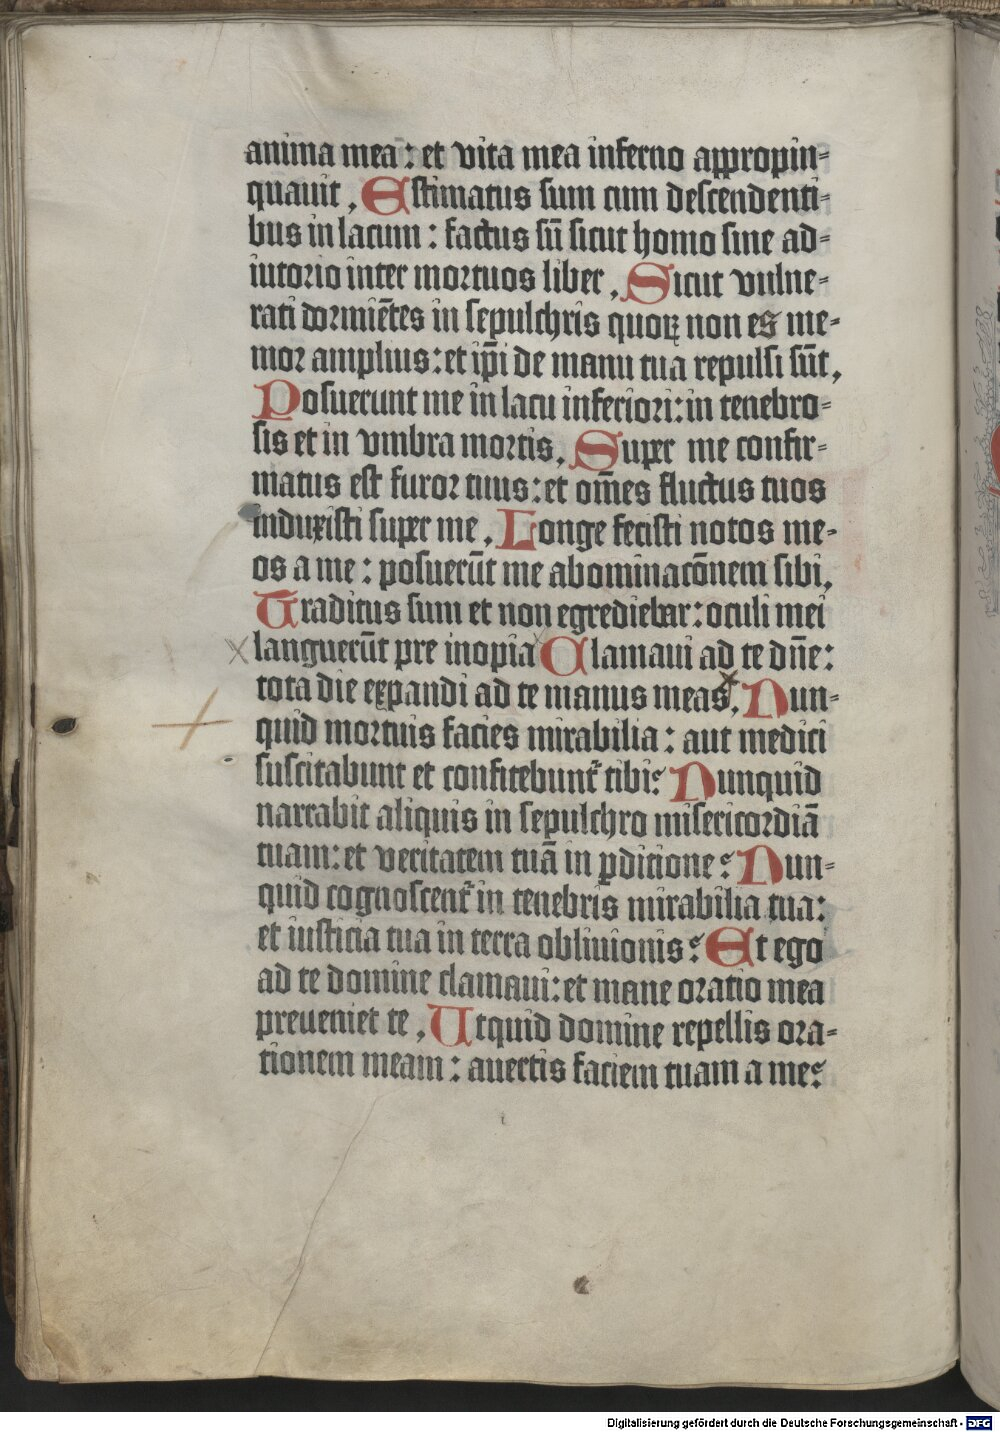 anima mea: et vita mea inferno appropin-
quauit, Estimatus sum cum descendenti-
bus in lacum: factus sū sicut homo sine ad-
iutorio inter mortuos liber, Sicut vulne-
rati dormiētes in sepulchris quoꝝ non es me-
mor amplius: et ip̄i de manu tua repulsi sūt,
Posuerunt me in lacu inferiori: in tenebro-
sis et in vmbra mortis, Super me confir-
matus est furor tuus: et om̄es fluctus tuos
induxisti super me, Longe fecisti notos me-
os a me: posuerūt me abominacōnem sibi,
Traditus sum et non egrediebar: oculi mei
languerūt pre inopia Clamaui ad te dn̄e:
tota die expandi ad te manus meas, Nun-
quid mortuis facies mirabilia: aut medici
suscitabunt et confitebunt᷑ tibi? Nunquid
narrabit aliquis in sepulchro misericordiā
tuam: et veritatem tuā in ꝑditione? Nun-
quid cognoscent᷑ in tenebris mirabilia tua:
et iusticia tua in terra obliuionis? Et ego
ad te domine clamaui: et mane oratio mea
preueniet te, Utquid domine repellis ora-
tionem meam: auertis faciem tuam a me?
Digitalisierung gefördert durch die Deutsche Forschungsgemeinschaft - DFG